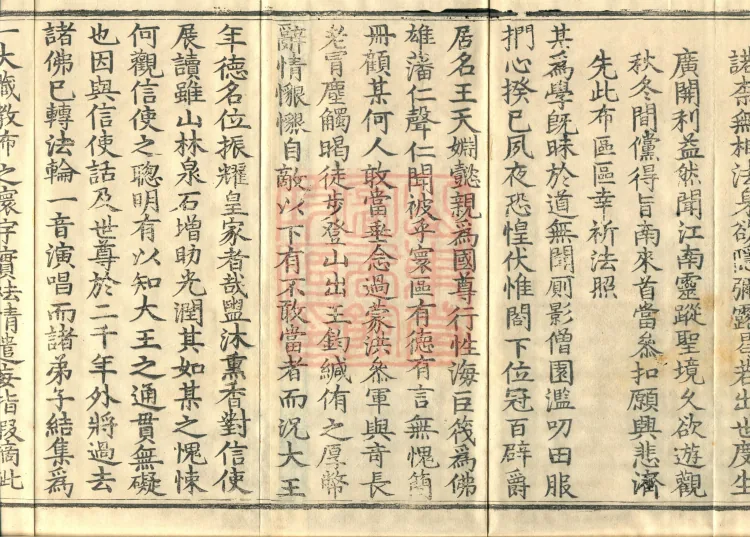 諸柰無相法身欲隱彌露暑若出世度生
廣開利益然聞江南靈蹤聖境久欲遊觀
秋冬間儻得旨南來首當叅扣願興悲濟
先此布區區幸祈法照
其爲學旣昧於道無聞厠影僧園濫叨田服
捫心揆已夙夜恐惶伏惟閤下位冠百辟爵
居名王天婣懿親爲國尊行性海巨筏爲佛
雄藩仁聲仁聞被乎寰區有德有言無愧簡
冊顧某何人敢當垂念過蒙洪叅軍與奇長
老冐塵觸暍徒步登山出王鈞緘侑之厚幣
辭情懇懇自敵以下有不敢當者而況大王
年德名位振耀皇家者哉盥沐熏香對信使
展讀雖山林泉石增助光潤其如某之愧悚
何觀信使之聰明有以知大王之通貫無礙
也因與信使話及世尊於二千年外將過去
諸佛已轉法輪一音演唱而諸弟子結集爲
一大藏教布之寰宇實法情遣妄指假